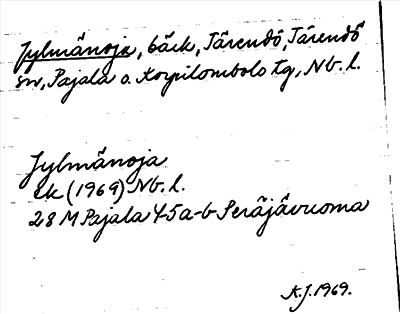 Jylmänoja, bäck, Tärendö, Tärendö
sn, Pajala o. Korpilombolo tg, Nb. l.
Jylmänoja
ek (1969) Nb. l.
28 M Pajala 4-5a-b Peräjävuoma
A.J. 1969.